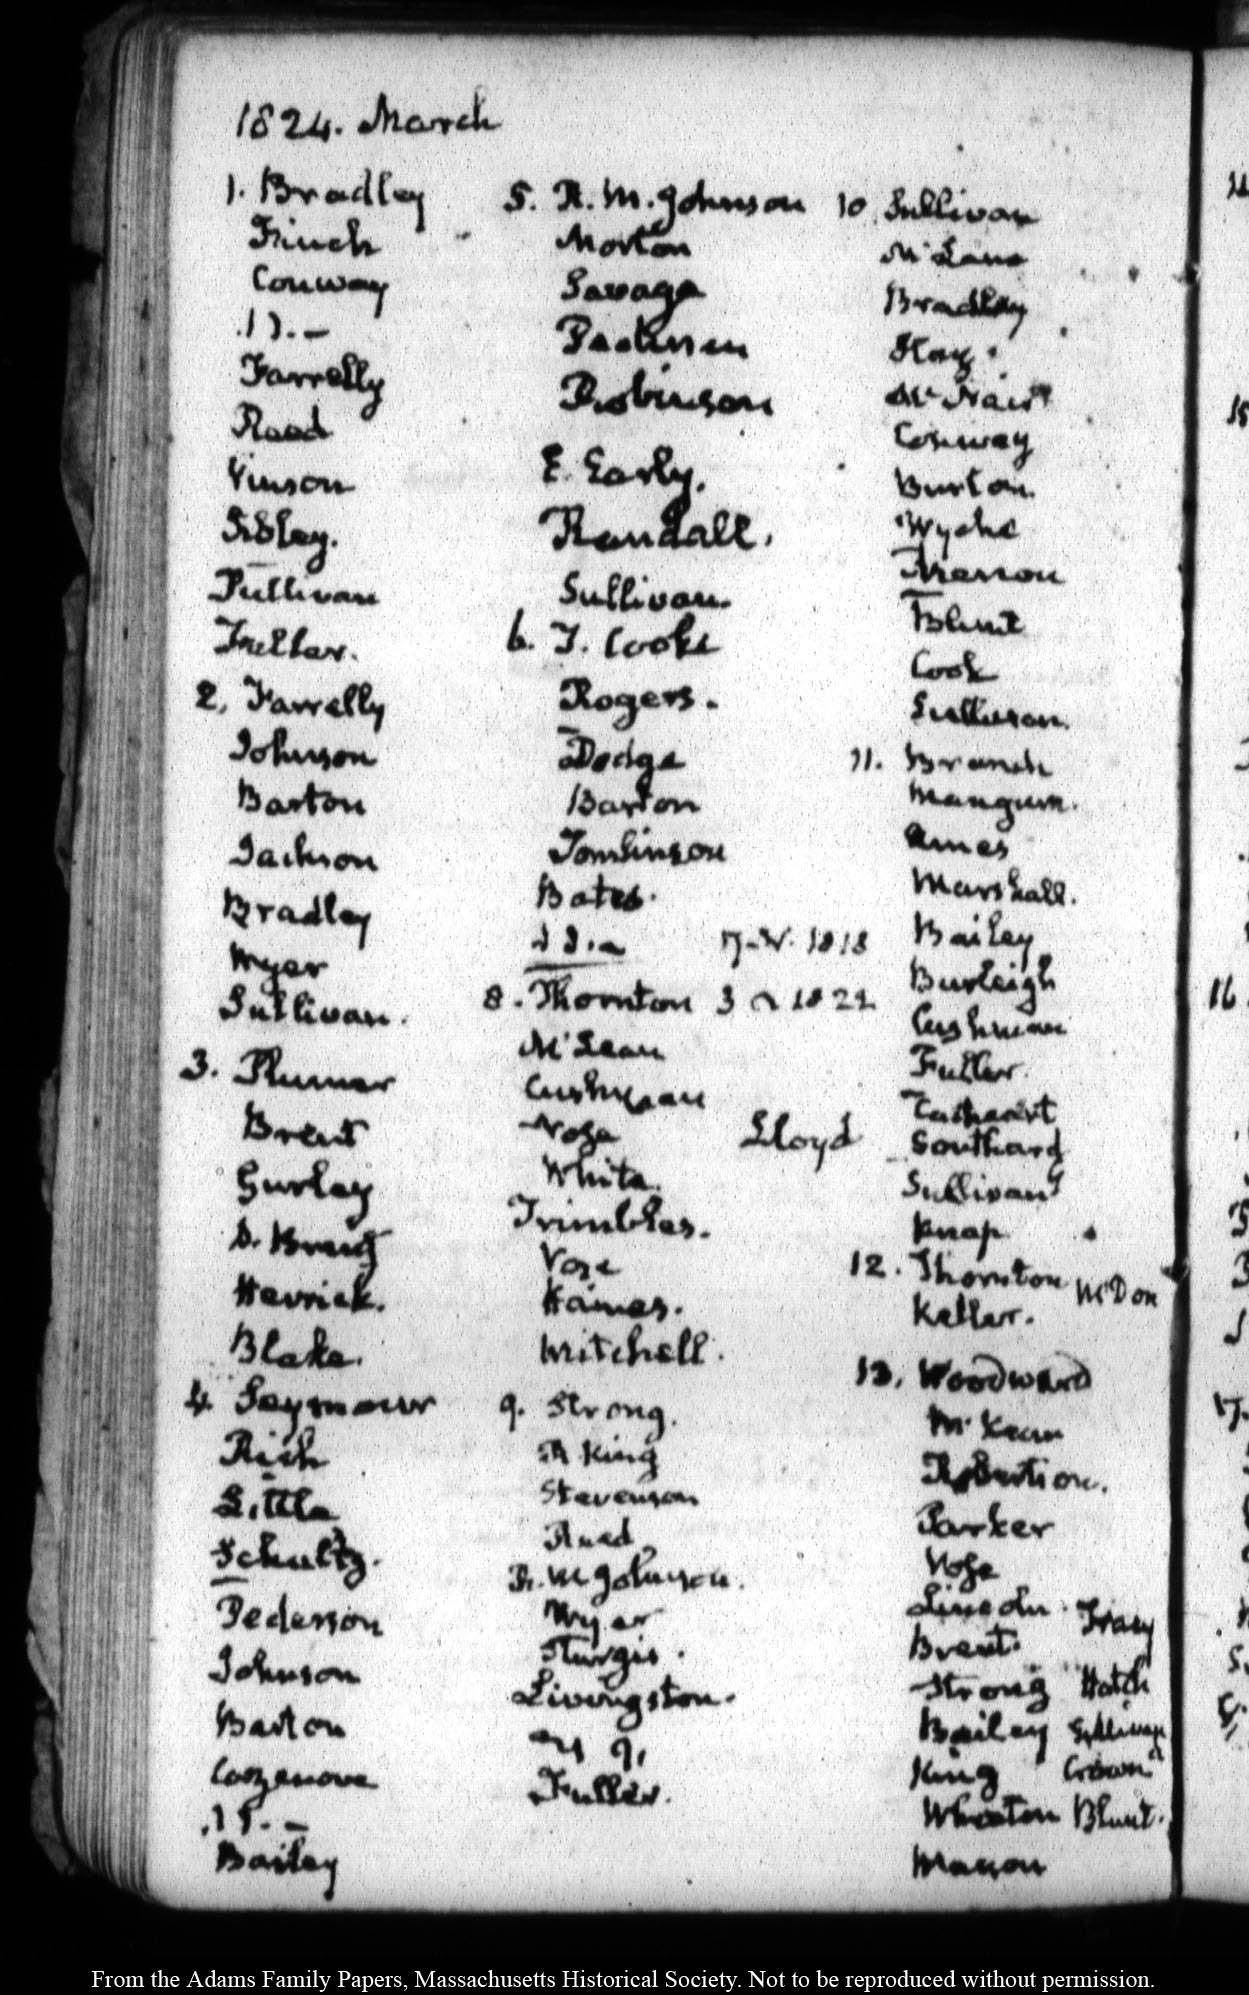 1824. March
1. Bradley
Finch
Conway
17.-
Farrelly
Reed
Vinson
Sibley.
Sullivan
Fuller.
2. Farrelly
Johnson
Barton
Jackson
Bradley
Wyer
Sullivan.
3. Plumer
Brent
Gurley
D. Brent
Herrick.
Blake.
4. Seymour
Rich
Little
Schultz.
Pederson
Johnson
Barton
Cazenove
Bailey
5. R. M. Johnson
Morton
Savage
Robinson
E. Early.
Randall.
Sullivan.
6. J. Cooke
Rogers.
Dodge
Barton
Tomlinson
Bates.
8. Thornton 3 1821
McLean
Cushman
Nose
White.
Lloyd
Trimbles.
Vose
Haines.
Mitchell.
9. Strong.
R King
Stevenson
Reed
R. M Johnson.
Wyer
Sturgis.
Livingston.
Fuller.
10 Sullivan
McLane
Bradley
Hay.
McNair
Conway
Burton.
Wyche
Blunt
Cook
Sullivan.
11. Branch
Mangum.
Ames
Marshall.
Bailey
Burleigh
Cushman
Fuller.
Cathcart
Southard
Sullivan
Knap
12. Thornton McDon
Keller.
13. Woodward
McKean
Robertson.
Parker
Vose
Lincoln. Tracy
Brent.
Strong Hatch
Bailey Sullivan
King Crown
Wheaton Blunt.
Mason
From the Adams Family Papers, Massachusetts Historical Society. Not to be reproduced without permission.